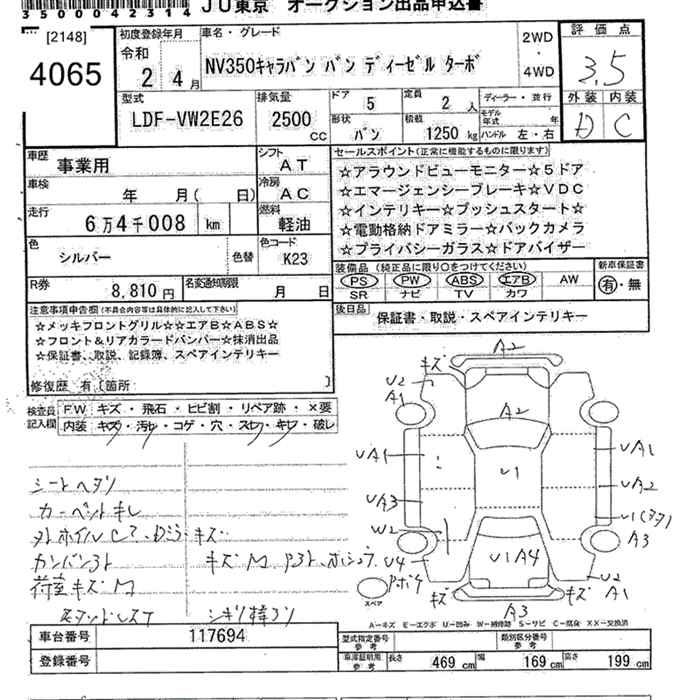 35000042314 JU東京 オークション出品申込書
[2148]
4065
初度登録年月
令和
2年 4月
車名・グレード
NV350キャラバン バン ディーゼル ターボ
2WD
・
4WD
評価点
3.5
外装 内装
D C
型式
LDF-VW2E26
排気量
2500 CC
ドア 5
定員 2 人
ディーラー・並行
モデル年式 年
形状 バン
積載 1250 kg
ハンドル 左・右
車歴 事業用
シフト AT
車検 年 月( 日)
冷房 AC
走行 6万4千008 km
燃料 軽油
色 シルバー 色替
色コード K23
R券 8,810 円
名変通知期限 月 日
セールスポイント(正常に機能するものに限ります)
☆アラウンドビューモニター☆5ドア
☆エマージェンシーブレーキ☆VDC
☆インテリキー☆プッシュスタート☆
☆電動格納ドアミラー☆バックカメラ
☆プライバシーガラス☆ドアバイザー
装備品 (純正品に限り○をつけてください)
PS PW ABS エアB AW
SR ナビ TV カワ
新車保証書
有・無
後日品
保証書・取説・スペアインテリキー
注意事項申告欄(不具合内容等は具体的に記入して下さい)
☆メッキフロントグリル☆☆エアB☆ABS☆
☆フロント&リアカラードバンパー☆抹消出品
☆保証書、取説、記録簿、スペアインテリキー
修復歴 有 [箇所: ]
検査員記入欄
FW キズ・飛石・ヒビ割・リペア跡・×要
内装 キズ・汚レ・コゲ・穴・スレ・キレ・破レ
シートヘタリ
カーペットキレ
キズ
カンバン
キズ M
荷室キズ M
キズ A2
U2
A1
A2
UA1
U1
UA1
UA3
UA2
W2
U1
A3
U4
U1A4
キズ
A3
キズ
U2
A1
スペア
A-キズ E-エクボ U-凹み W-補修跡 S-サビ C-腐食 XX-交換済
車台番号 117694
登録番号
型式指定番号 参考
類別区分番号 参考
車庫証明用 参考
長さ 469 cm
幅 169 cm
高さ 199 cm